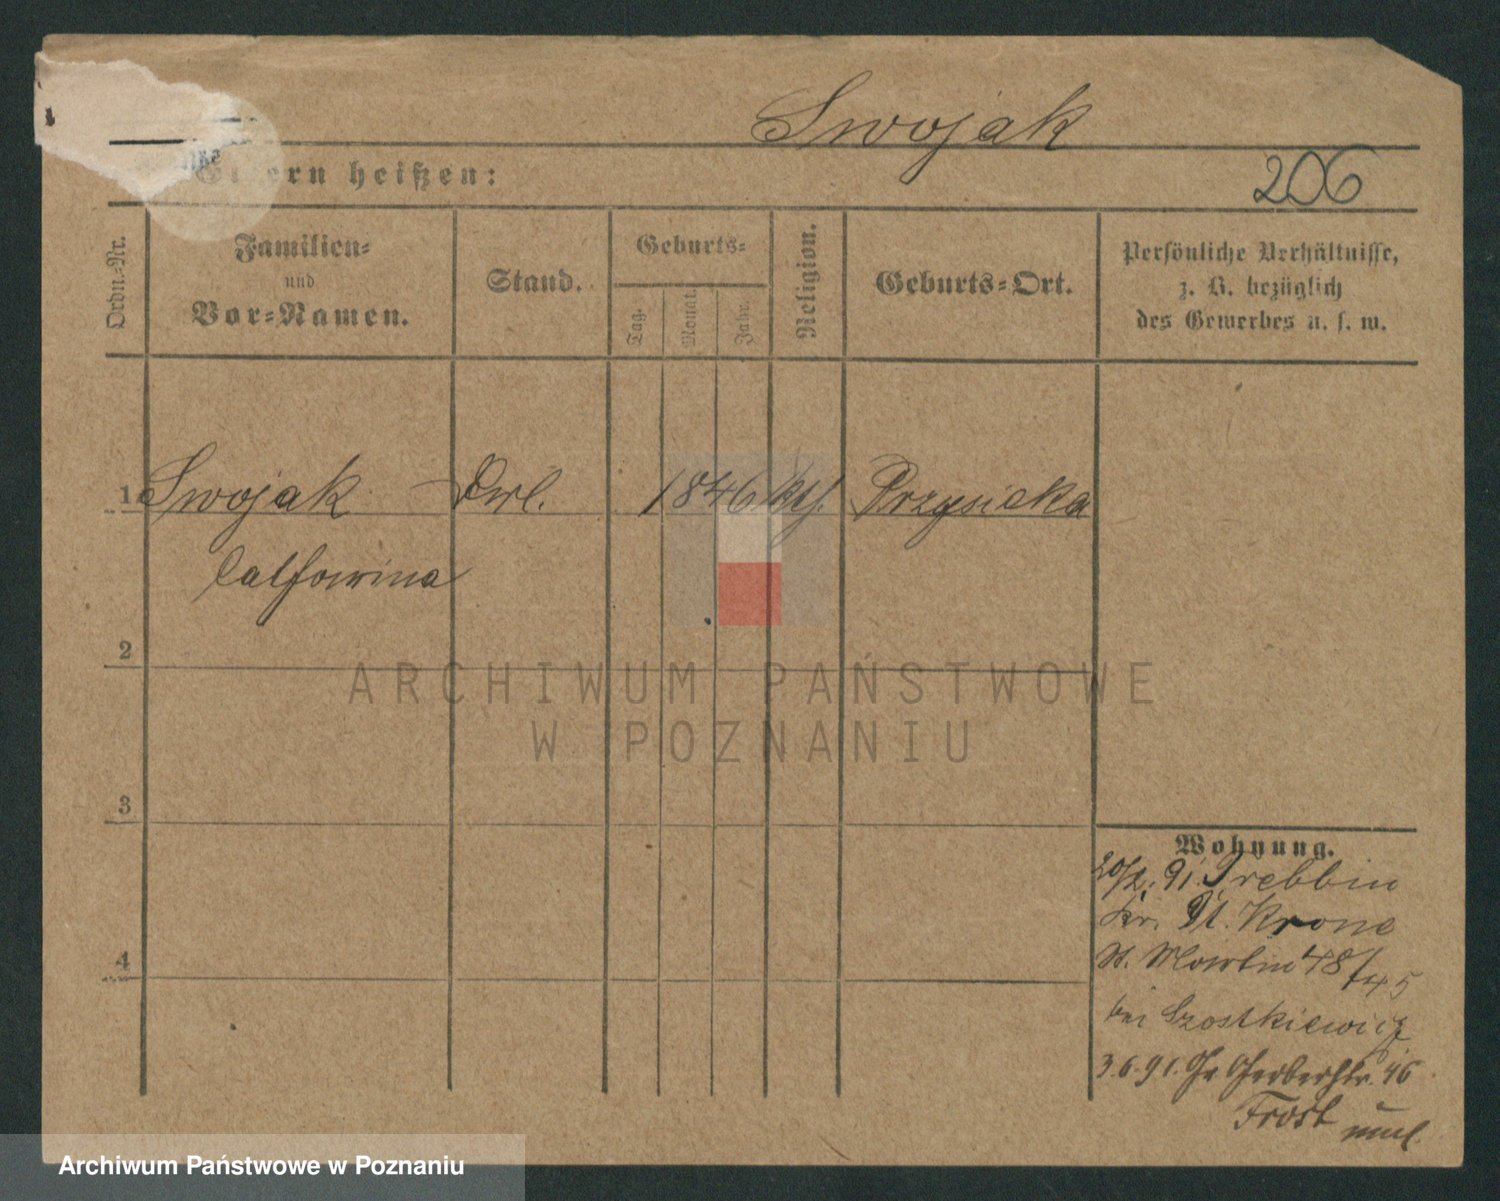 Swojak
206
Eltern heißen:
Ordn.-Nr.
Familien-
und
Vor-Namen.
Stand.
Geburts-
Tag.
Monat.
Jahr.
Religion.
Geburts-Ort.
Persönliche Verhältnisse,
z. B. bezüglich
des Gewerbes u. s. w.
1 Swojak 1846 kth. Przysieka
2
3
4
Wohnung.
91. Trebbin
Kr. Dt. Krone
St. Martin 48/45
bei Szostkiewicz
3.6.91. Gr. Gerberstr. 46
Frost
ARCHIWUM PAŃSTWOWE
W POZNANIU
Archiwum Państwowe w Poznaniu